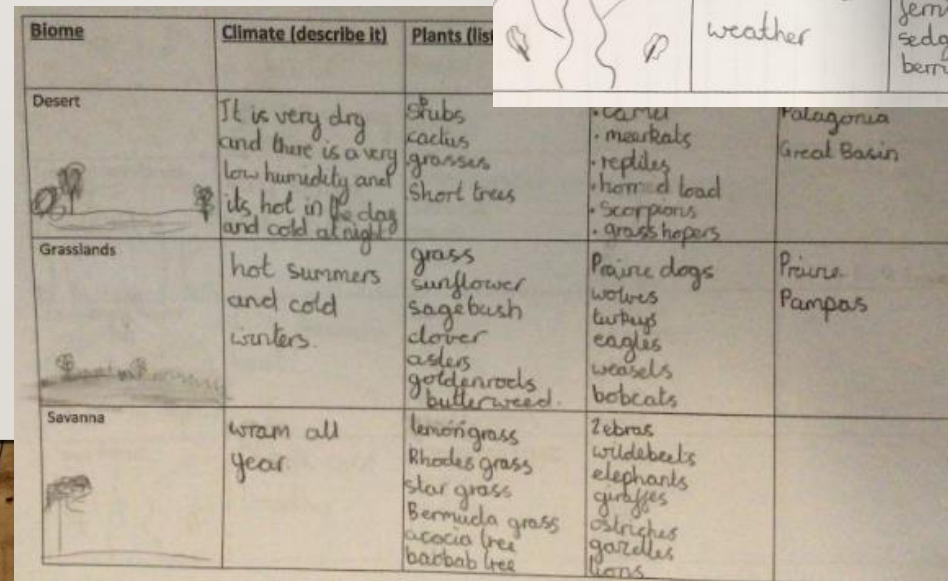 weather
sedg
berri
Biome
Climate (describe it)
Plants (list
Desert
It is very dry
and there is a very
low humidity and
its hot in the day
and cold at night
shubs
cactus
grasses
Short trees
• camel
• meerkats
• reptiles
• horned toad
• Scorpions
• grasshopers
Patagonia
Great Basin
Grasslands
hot summers
and cold
winters.
grass
sunflower
sagebush
clover
asters
goldenrods
butterweed.
Prairie dogs
wolves
turkeys
eagles
weasels
bobcats
Prairie
Pampas
Savanna
wram all
year
lemongrass
Rhodes grass
star grass
Bermuda grass
acocia tree
baobab tree
Zebras
wildebeets
elephants
giraffes
ostriches
gazelles
lions